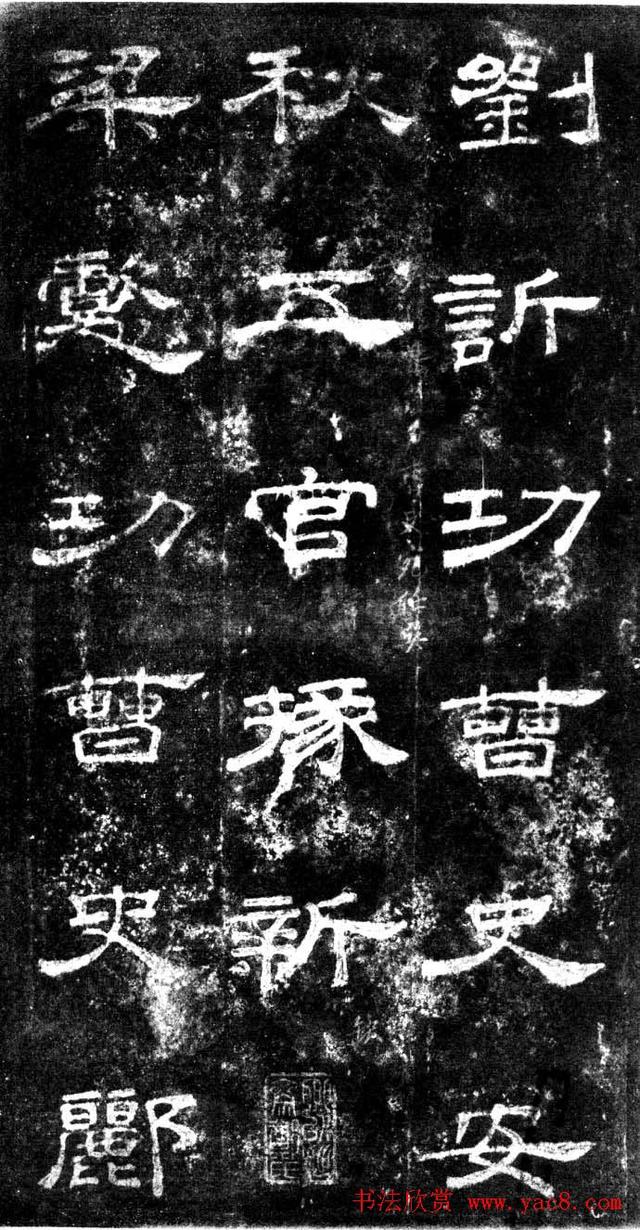 劉訢功曹史安
秋五官掾新
梁功曹史酈
书法欣赏 www.yac8.com